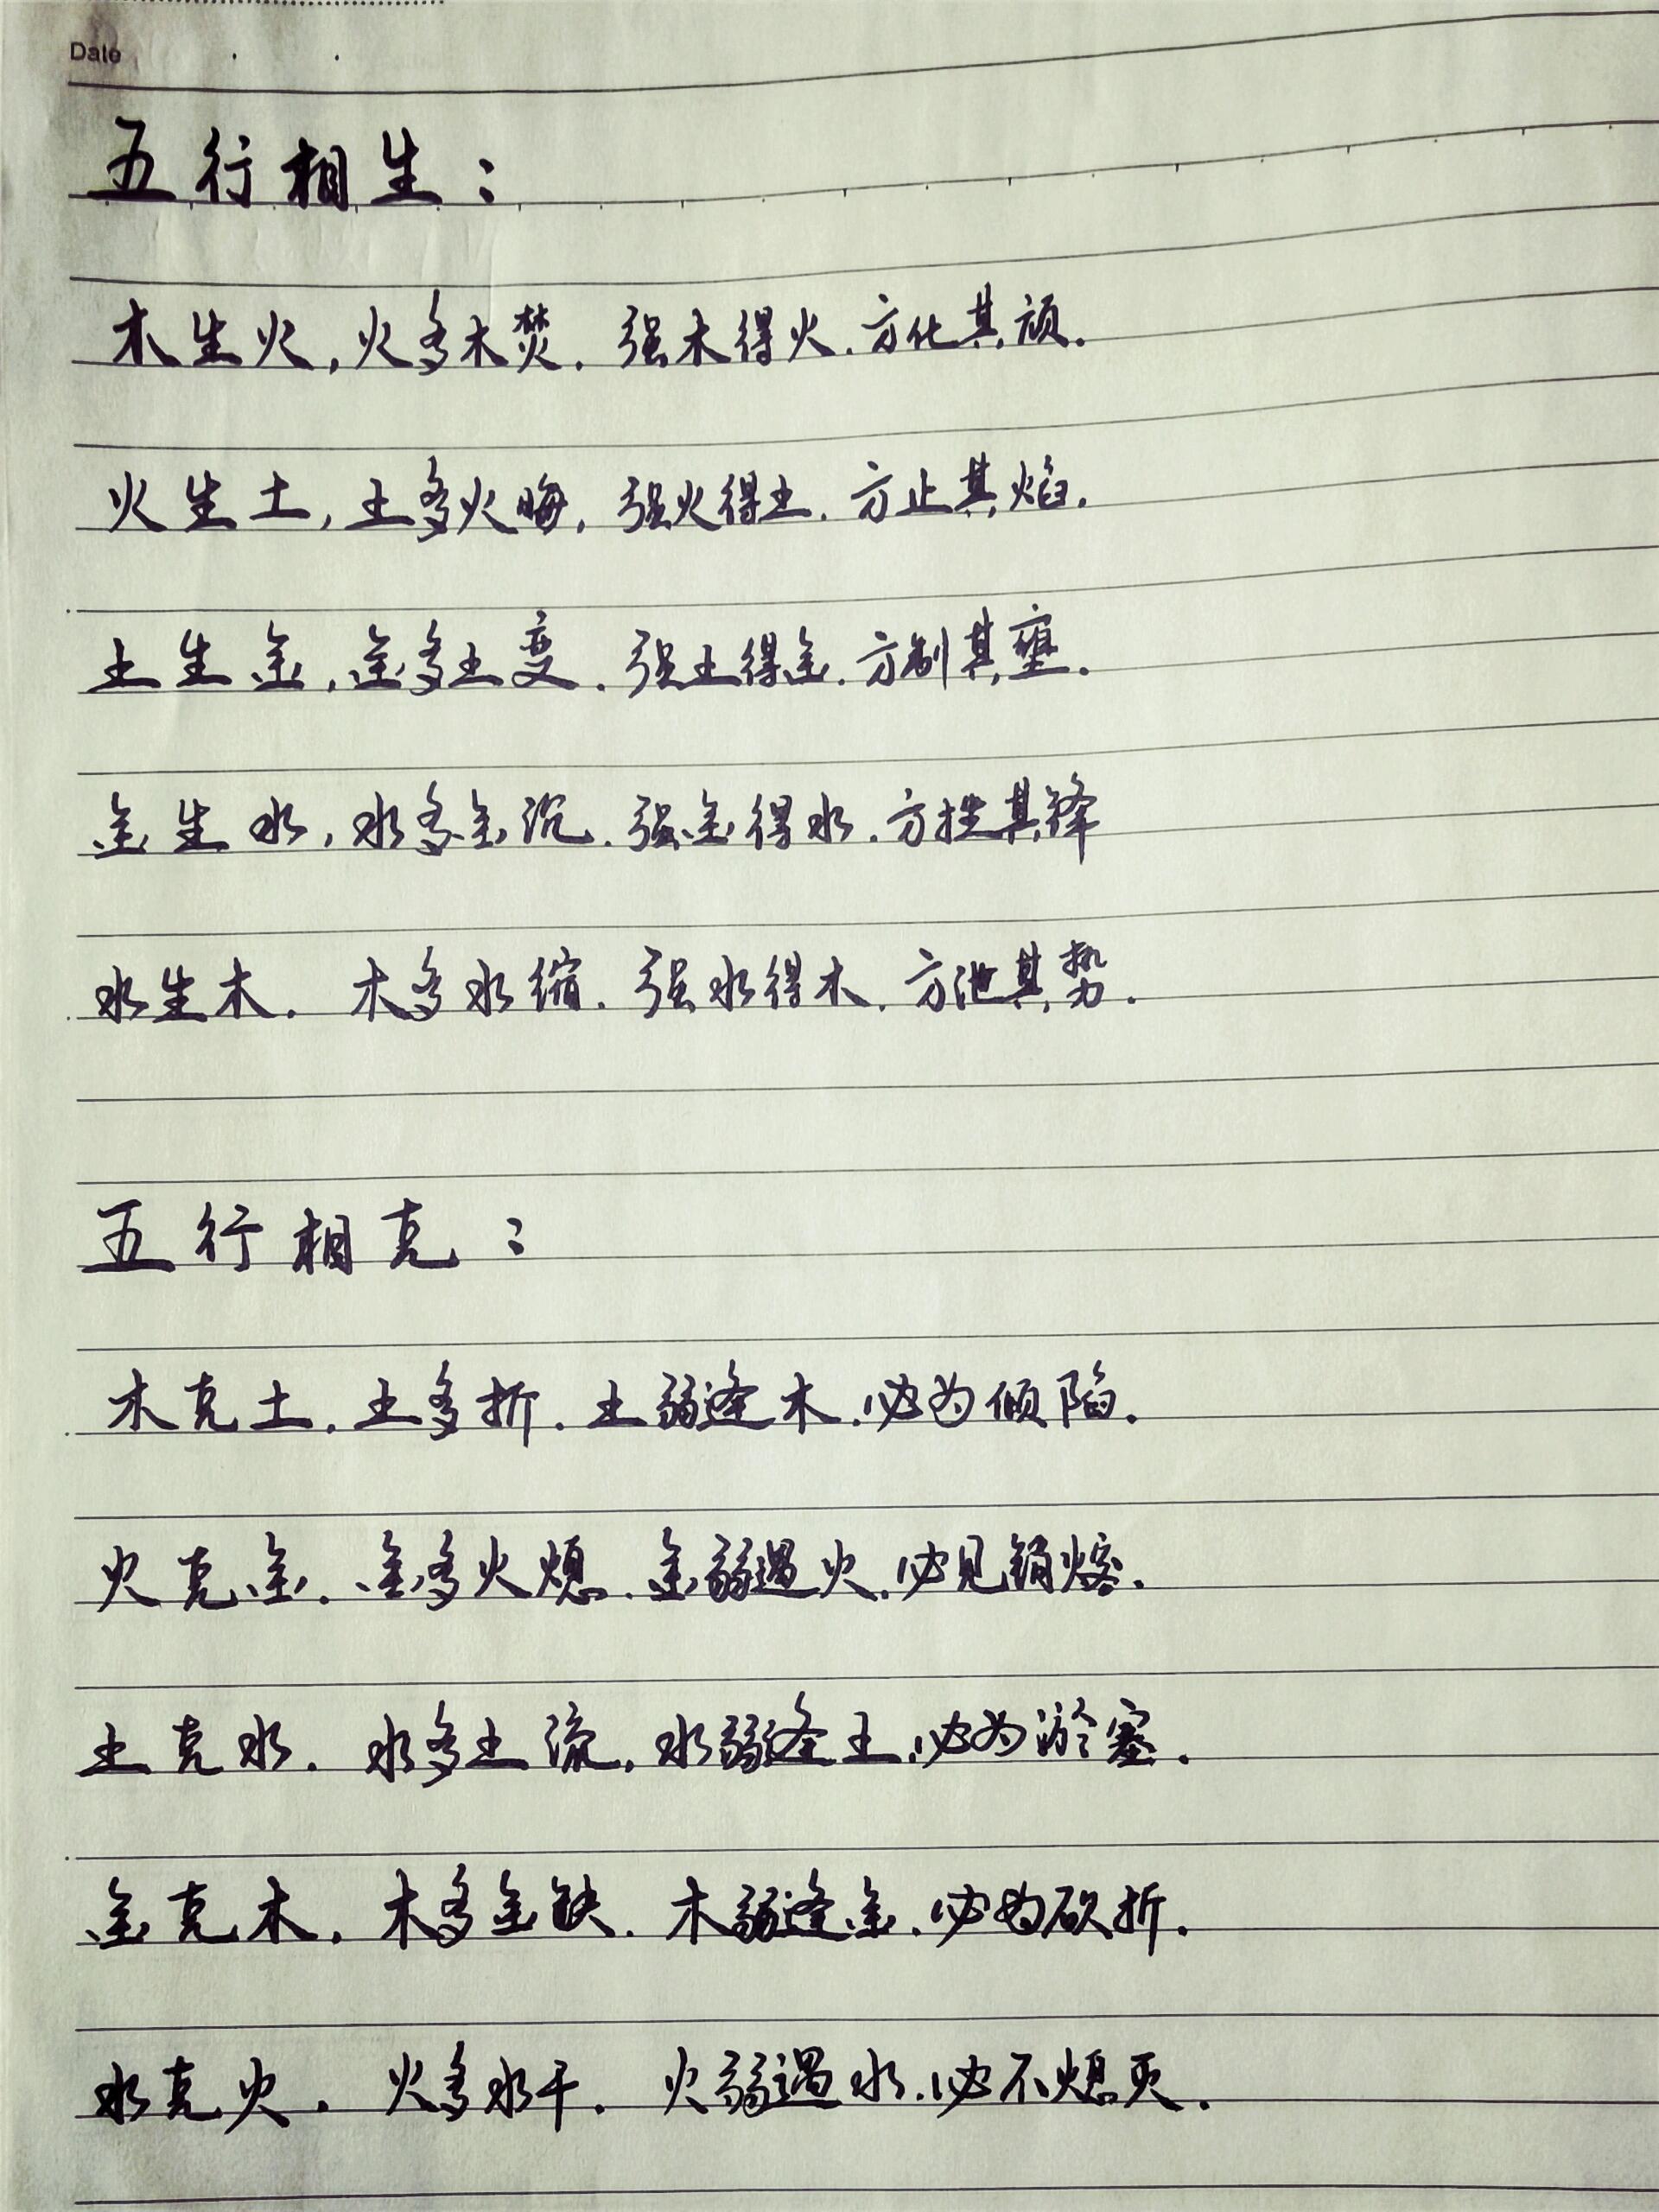 Date
五行相生：
木生火,火多木焚.强木得火.方化其顽.
火生土,土多火晦.强火得土.方止其焰.
土生金,金多土变.强土得金.方制其壅.
金生水,水多金沉.强金得水.方挫其锋
水生木.木多水缩.强水得木.方泄其势.
五行相克：
木克土.土多折.土弱逢木.必为倾陷.
火克金.金多火熄.金弱遇火.必见销熔.
土克水.水多土流.水弱逢土.必为淤塞.
金克木.木多金缺.木弱逢金.必为砍折.
水克火.火多水干.火弱遇水.必不熄灭.